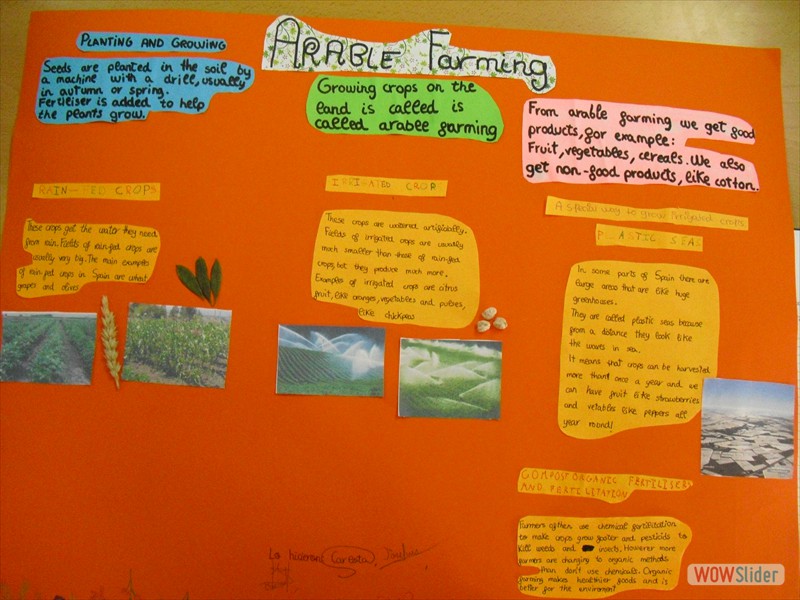 PLANTING AND GROWING
Seeds are planted in the soil by
a machine with a drill, usually
in autumn or spring.
Ferteliser is added to help
the plants grow.
ARABLE Farming
Growing crops on the
land is called is
called arabee garming
From arable garming we get good
products, gor example:
Fruit, vegetables, cereals. We also
get non-good products, like cotton.
RAIN-FED CROPS
These crops get the water they need
from rain. Fields of rain-fed crops are
usually very big. The main examples
of rain-fed crops in Spain are wheat
grapes and olives
IRRIGATED CROP
These crops are watered artificially.
Fields of irrigated crops are usually
much smaller than those of rain-fed
crops, but they produce much more.
Examples of irrigated crops are citros
fruit, like oranges, vegetables and pulses,
like chickpeas
A special way to grow irrigated crops
PLASTIC SEAS
In some parts of Spain there are
large areas that are like huge
greenhouses.
They are called plastic seas because
from a distance they look like
the waves in sea.
It means that crops can be harvested
more than once a year and we
can have fruit like strawberries
and vetables like peppers all
year round!
COMPOST ORGANIC FERTILISERS
AND FERTILITATION
Farmers often use chemical fertilitation
to make crops grow faster and pesticids to
kill weeds and insects. However more
farmers are changing to organic methods
than don't use chemicals. Organic
farming makes healthier goods and is
better for the enviroment
Lo hicieron:
WOWSlider